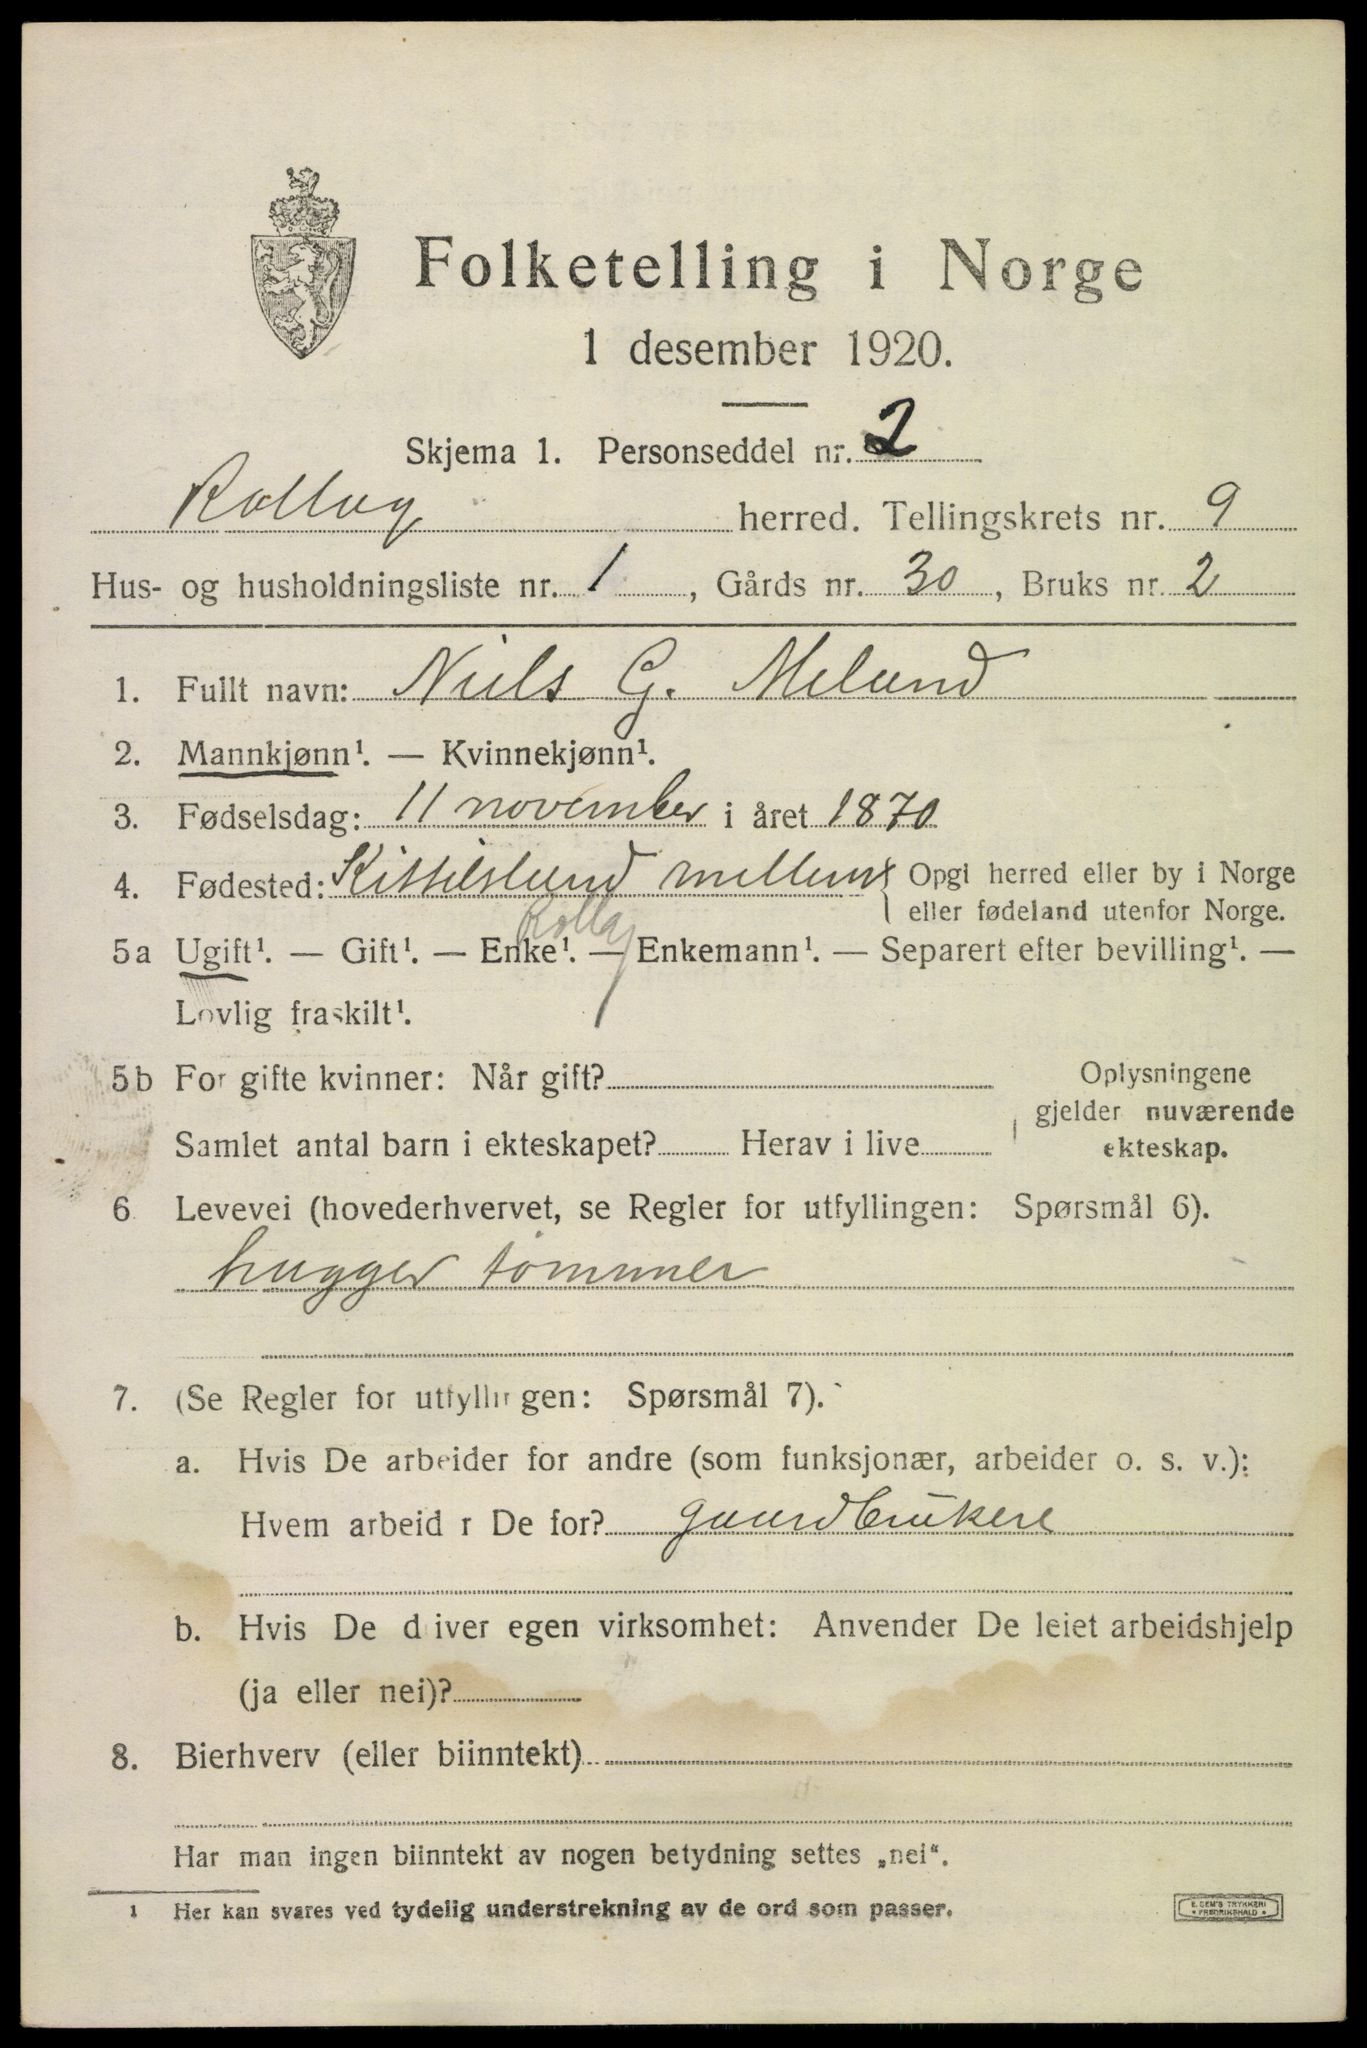 Folketelling i Norge
1 desember 1920.
Skjema 1. Personseddel nr. 2
Rollag herred. Tellingskrets nr. 9
Hus- og husholdningsliste nr. 1, Gårds nr. 30, Bruks nr. 2
1. Fullt navn: Niels G. Melund
2. Mannkjønn¹. — Kvinnekjønn¹.
3. Fødselsdag: 11 november i året 1870
4. Fødested: Kittilslund mellum { Opgi herred eller by i Norge
eller fødeland utenfor Norge.
Rollag
5a Ugift¹. — Gift¹. — Enke¹. — Enkemann¹. — Separert efter bevilling¹. —
Lovlig fraskilt¹.
5b For gifte kvinner: Når gift? Oplysningene
gjelder nuværende
Samlet antal barn i ekteskapet? Herav i live ekteskap.
6 Levevei (hovederhvervet, se Regler for utfyllingen: Spørsmål 6).
hugger tømmer
7. (Se Regler for utfyllingen: Spørsmål 7).
a. Hvis De arbeider for andre (som funksjonær, arbeider o. s. v.):
Hvem arbeid r De for? gaardbrukere
b. Hvis De d iver egen virksomhet: Anvender De leiet arbeidshjelp
(ja eller nei)?
8. Bierhverv (eller biinntekt)
Har man ingen biinntekt av nogen betydning settes „nei“.
1 Her kan svares ved tydelig understrekning av de ord som passer.
E. SEM'S TRYKKERI
* FREDRIKSHALD *